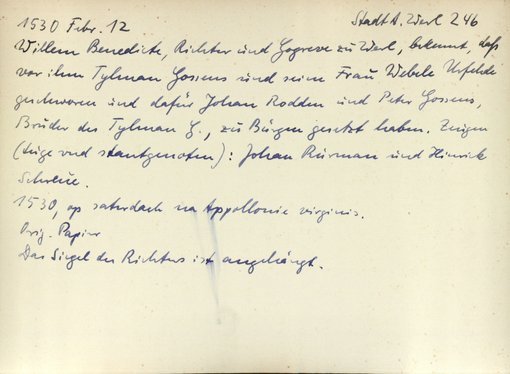 1530 Febr. 12 Stadt A. Werl Z 46
Willem Benedicte, Richter und Gogreve zu Werl, bekennt, daß
vor ihm Tylman Gosens und seine Frau Webele Urfehde
geschworen und dafür Johan Rodden und Peter Gosens,
Bruder des Tylman G., zu Bürgen gesetzt haben. Zeugen
(tuge vnd stantgenoten): Johan Rurman und Hinrik
1530, op saterdach na Appollonie virginis.
Orig. Papier
Das Siegel des Richters ist angehängt.